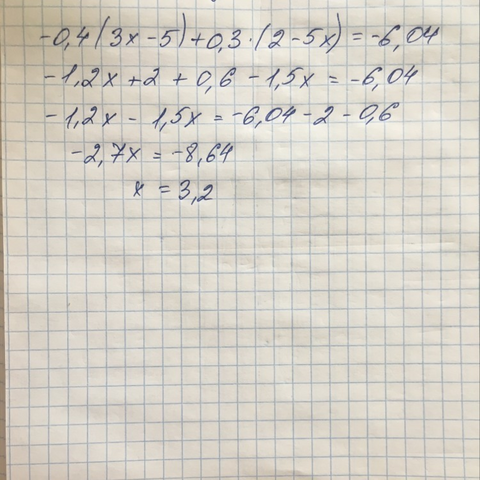 -0,4(3x-5)+0,3·(2-5x)=-6,04
-1,2x+2+0,6-1,5x=-6,04
-1,2x-1,5x=-6,04-2-0,6
-2,7x=-8,64
x=3,2